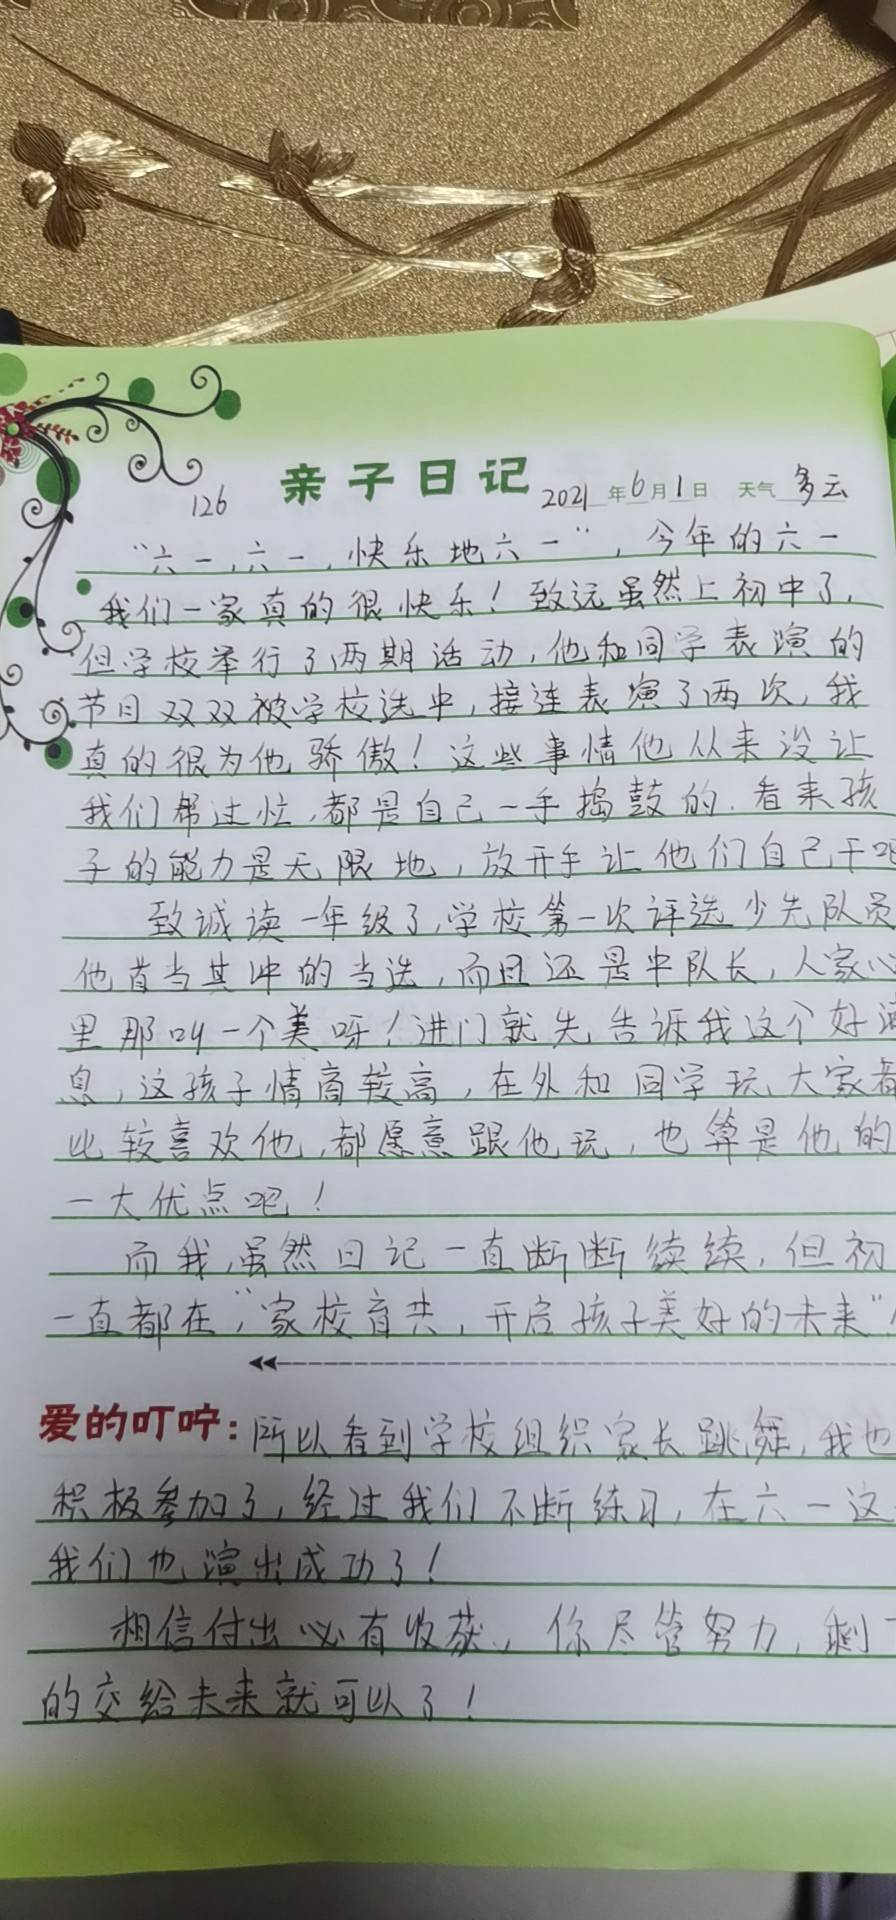 126 亲子日记 2021年6月1日 天气 多云
“六一,六一,快乐地六一”,今年的六一
我们一家真的很快乐!致远虽然上初中了,
但学校举行了两期活动,他和同学表演的
节目双双被学校选中,接连表演了两次,我
真的很为他骄傲!这些事情他从来没让
我们帮过忙,都是自己一手捣鼓的.看来孩
子的能力是无限地,放开手让他们自己干吧
致诚读一年级了,学校第一次评选少先队员
他首当其冲的当选,而且还是中队长,人家心
里那叫一个美呀!进门就先告诉我这个好消
息,这孩子情商较高,在外和同学玩大家都
比较喜欢他,都愿意跟他玩,也算是他的
一大优点吧!
而我,虽然日记一直断断续续,但初
一直都在,“家校育共,开启孩子美好的未来”
爱的叮咛:所以看到学校组织家长跳舞,我也
积极参加了,经过我们不断练习,在六一这
我们也演出成功了!
相信付出必有收获,你尽管努力,剩下
的交给未来就可以了!